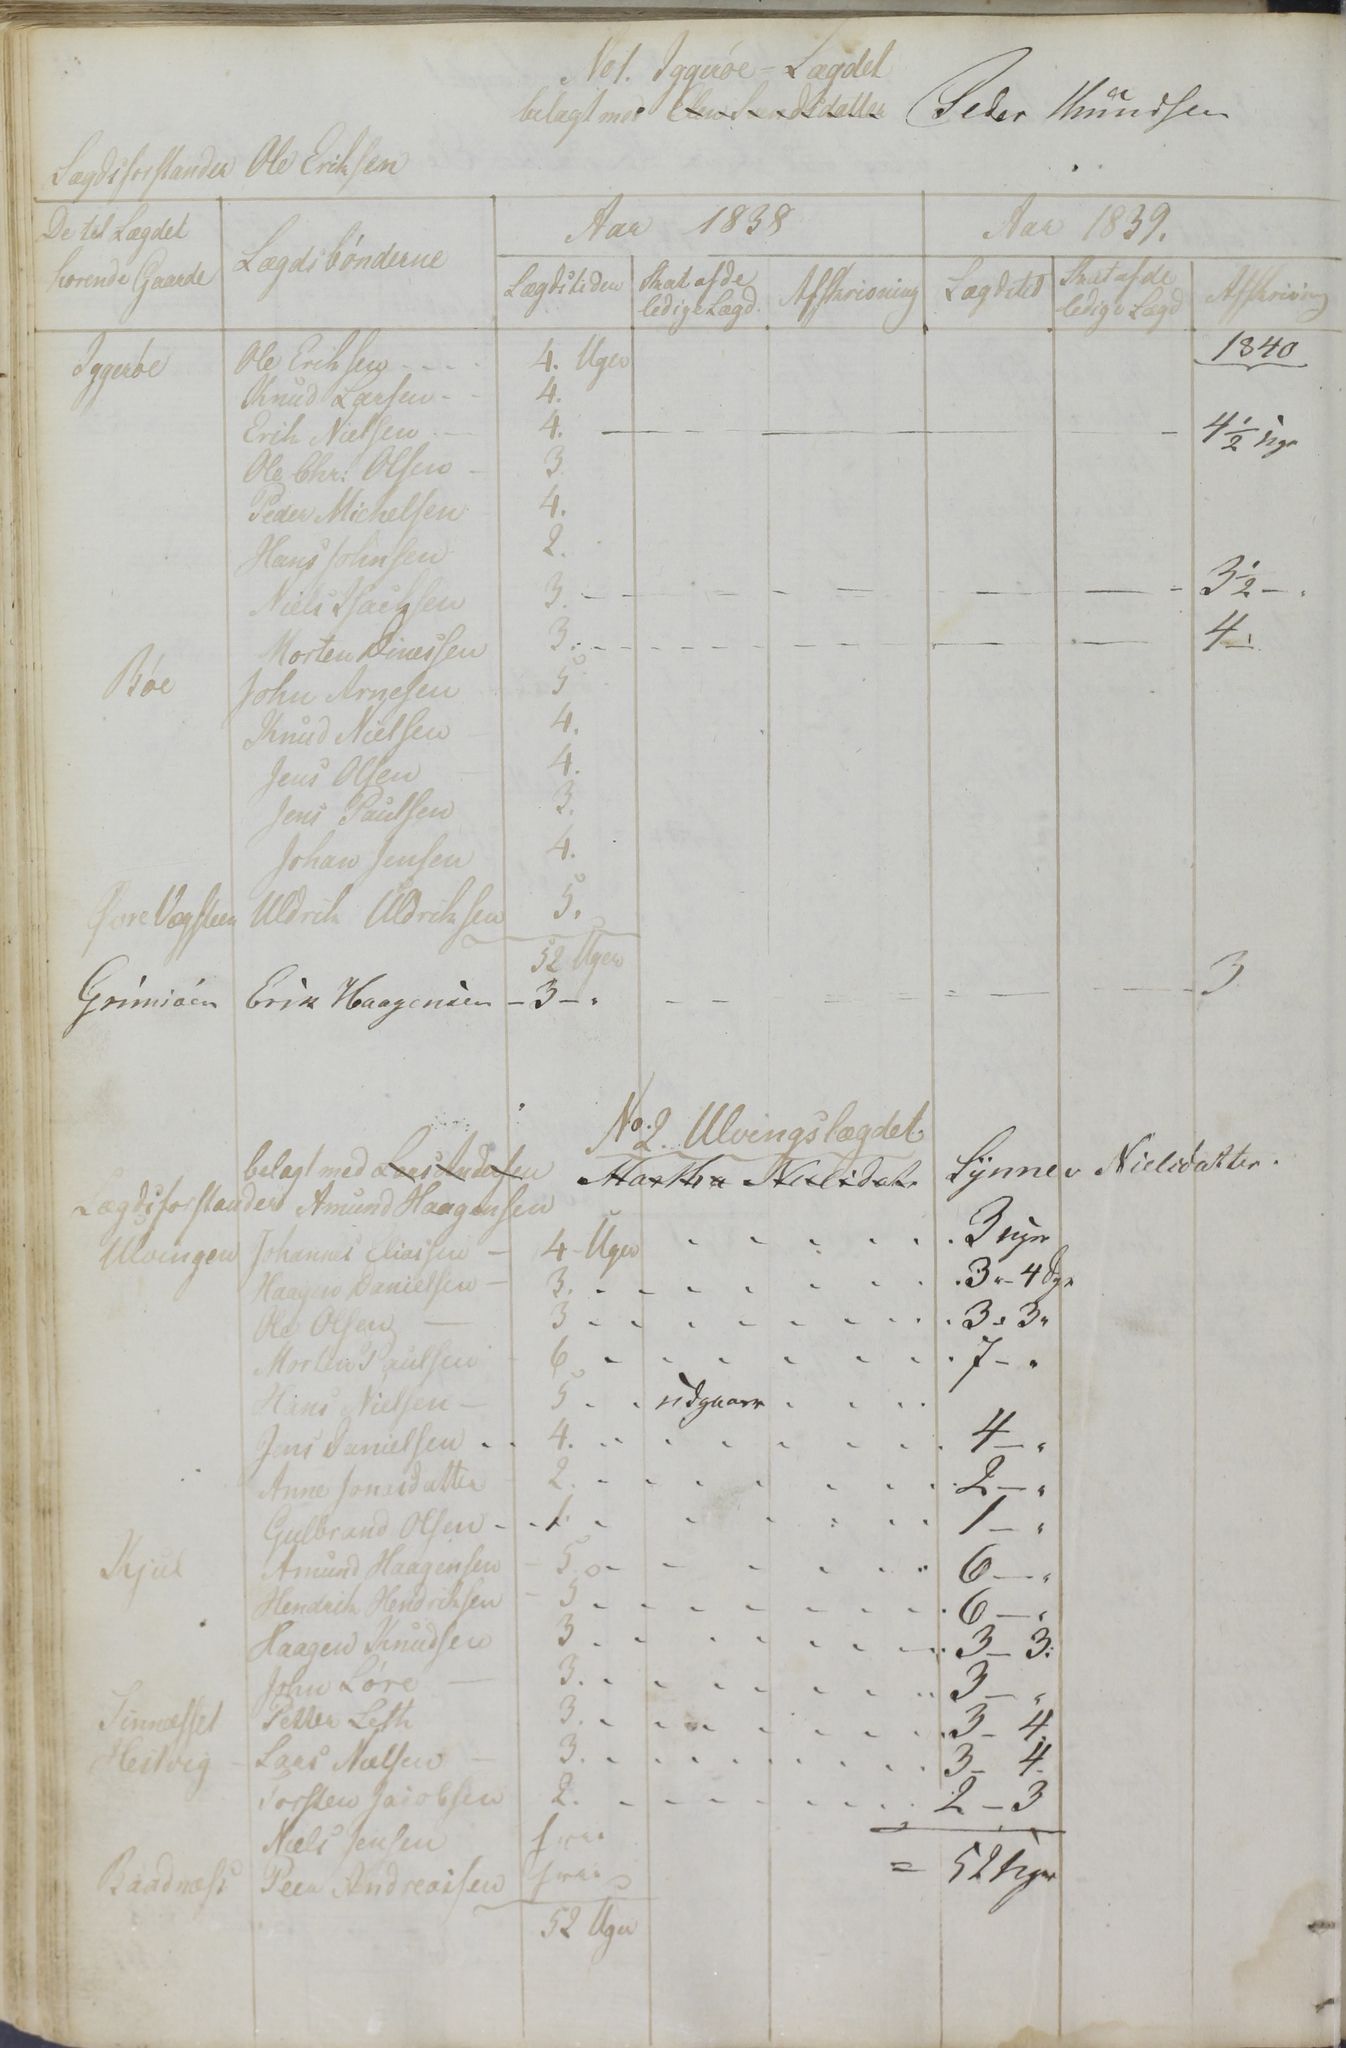 No 1. Iggerøe - Lægdet
belagt med Peder Knudsen
Lægdsforstander Ole Eriksen
De til Lægdet hørende Gaarde | Lægdsbønderne | Aar 1838 | Aar 1839.
Lægdstiden | Skat af de ledige Lægd. | Afskrivning | Lægdstid | Skat af de ledige Lægd | Afskrivning
Iggerøe Ole Eriksen 4. Uger 1840
Knud Larsen - 4.
Erik Nielsen - 4. 4 1/2 Ugr
Ole Chr: Olsen - 3.
Peder Michelsen 4.
Hans Johnsen 2.
Niels Isachsen 3. 3 1/2 -
Morten Dinessen 3. 4 -
Bøe John Arnesen 5
Knud Nielsen - 4.
Jens Olsen - 4.
Jens Paulsen 3.
Johan Jensen 4.
Uldrik Uldriksen 5.
52 Uger
Grimsøen Erik Haagensen - 3 - " 3
No. 2. Ulvingslægdet
belagt med Martha Nielsdatr Synnev Nielsdatter.
Lægdsforstander Amund Haagensen
Ulvingen Johannes Eliassen - 4 - Uger 3 Ugr
Haagen Danielsen - 3. 3 " - 4 Dge
Ole Olsen - 3 3 " 3 "
Morten Paulsen - 6 7 - "
Hans Nielsen - 5 udgaaer
Jens Danielsen 4. 4 - "
Anne Jonasdatter 2. 2 - "
Gulbrand Olsen - 1. 1 - "
Kjul Amund Haagensen - 5 6 - "
Hendrik Hendriksen - 5 6 - "
Haagen Knudsen 3 3 - 3.
John Løre - 3. 3 - "
Petter Leth 3. 3 - 4.
Heitvig - Lars Nielsen - 3. 3 - 4.
Torsten Jacobsen 2. 2 - 3
Niels Jensen frie
Baadnæss Peer Andreassen frie = 52 Ugr
52 Uger